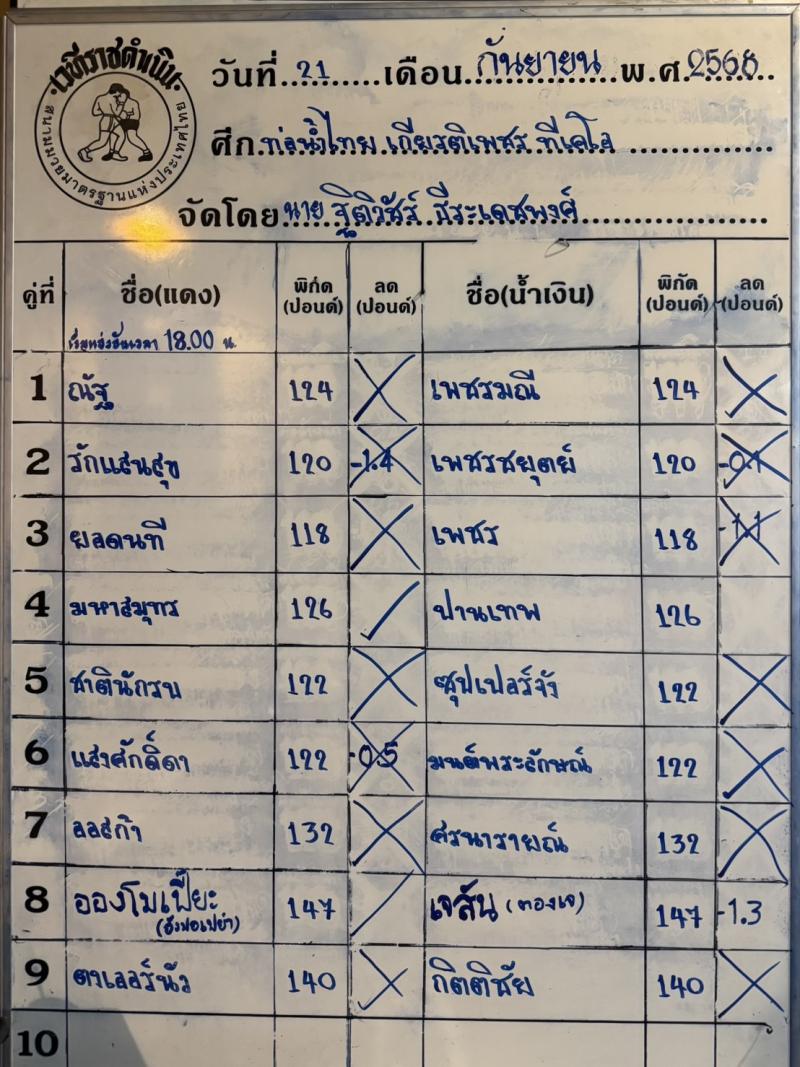 เวทีราชดำเนิน
สนามมวยมาตรฐานแห่งประเทศไทย
วันที่..21.....เดือน..กันยายน..พ.ศ.2568..
ศึก.ท่อน้ำไทย เกียรติเพชร ทีเคโอ
จัดโดย นาย ฐิติวัชร์ ธีระเดชพงศ์
คู่ที่ ชื่อ(แดง) พิกัด (ปอนด์) ลด (ปอนด์) ชื่อ(น้ำเงิน) พิกัด (ปอนด์) ลด (ปอนด์)
18.00 น.
1 ณัฐ 124 เพชรมณี 124
2 รักแสนสุข 120 -1.4 เพชรชยุตย์ 120 -0.1
3 ยลดนที 118 เพชร 118 -1.1
4 มหาสมุทร 126 ปานเทพ 126
5 ชาตินักรบ 122 ซุปเปอร์จัง 122
6 แสงศักดิ์ดา 122 -0.5 มนต์พระลักษณ์ 122
7 ลอสก้า 132 ศรนารายณ์ 132
8 อองโมเฟี๊ยะ 147 เจสัน (ตองเจ) 147 -1.3
9 ตาเลอร์นัว 140 กิตติชัย 140
10